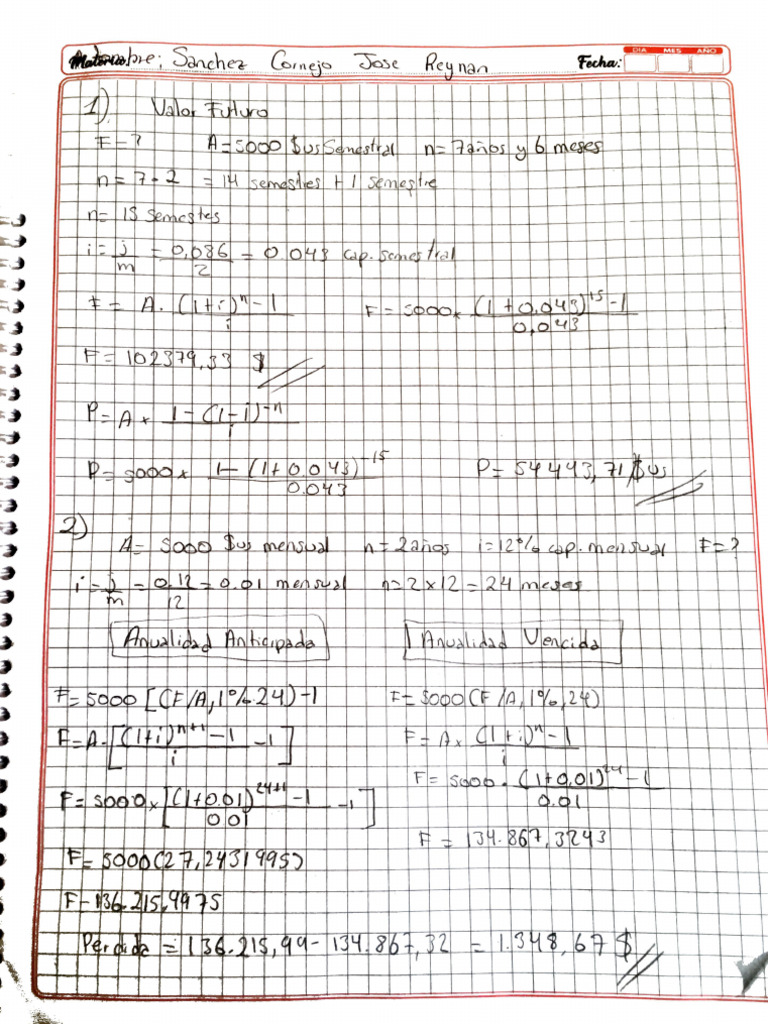 Nombre: Sanchez Cornejo Jose Reynan Fecha: DIA MES AÑO
1) Valor Futuro
F = ? A = 5000 $us Semestral n = 7 años y 6 meses
n = 7 · 2 = 14 semestres + 1 semestre
n = 15 semestres
i = j/m = 0,086/2 = 0.043 cap. semestral
F = A · ((1+i)^n - 1)/i F = 5000 x ((1+0.043)^15 - 1)/0,043
F = 102379,33 $
P = A x (1 - (1-i)^-n)/i
P = 5000 x (1 - (1+0.043)^-15)/0.043 P = 54443,71 $us
2)
A = 5000 $us mensual n = 2 años i = 12% cap. mensual F = ?
i = j/m = 0.12/12 = 0.01 mensual n = 2 x 12 = 24 meses
Anualidad Anticipada Anualidad Vencida
F = 5000 [(F/A, 1% 24) - 1 F = 5000 (F/A, 1%, 24)
F = A · [((1+i)^n+1 - 1)/i - 1] F = A x ((1+i)^n - 1)/i
F = 5000 x [((1+0.01)^24+1 - 1)/0.01 - 1] F = 5000 · ((1+0.01)^24 - 1)/0.01
F = 5000 (27,2431995) F = 134.867,3243
F = 136.215,9975
Perdida = 136.215,99 - 134.867,32 = 1.348,67 $